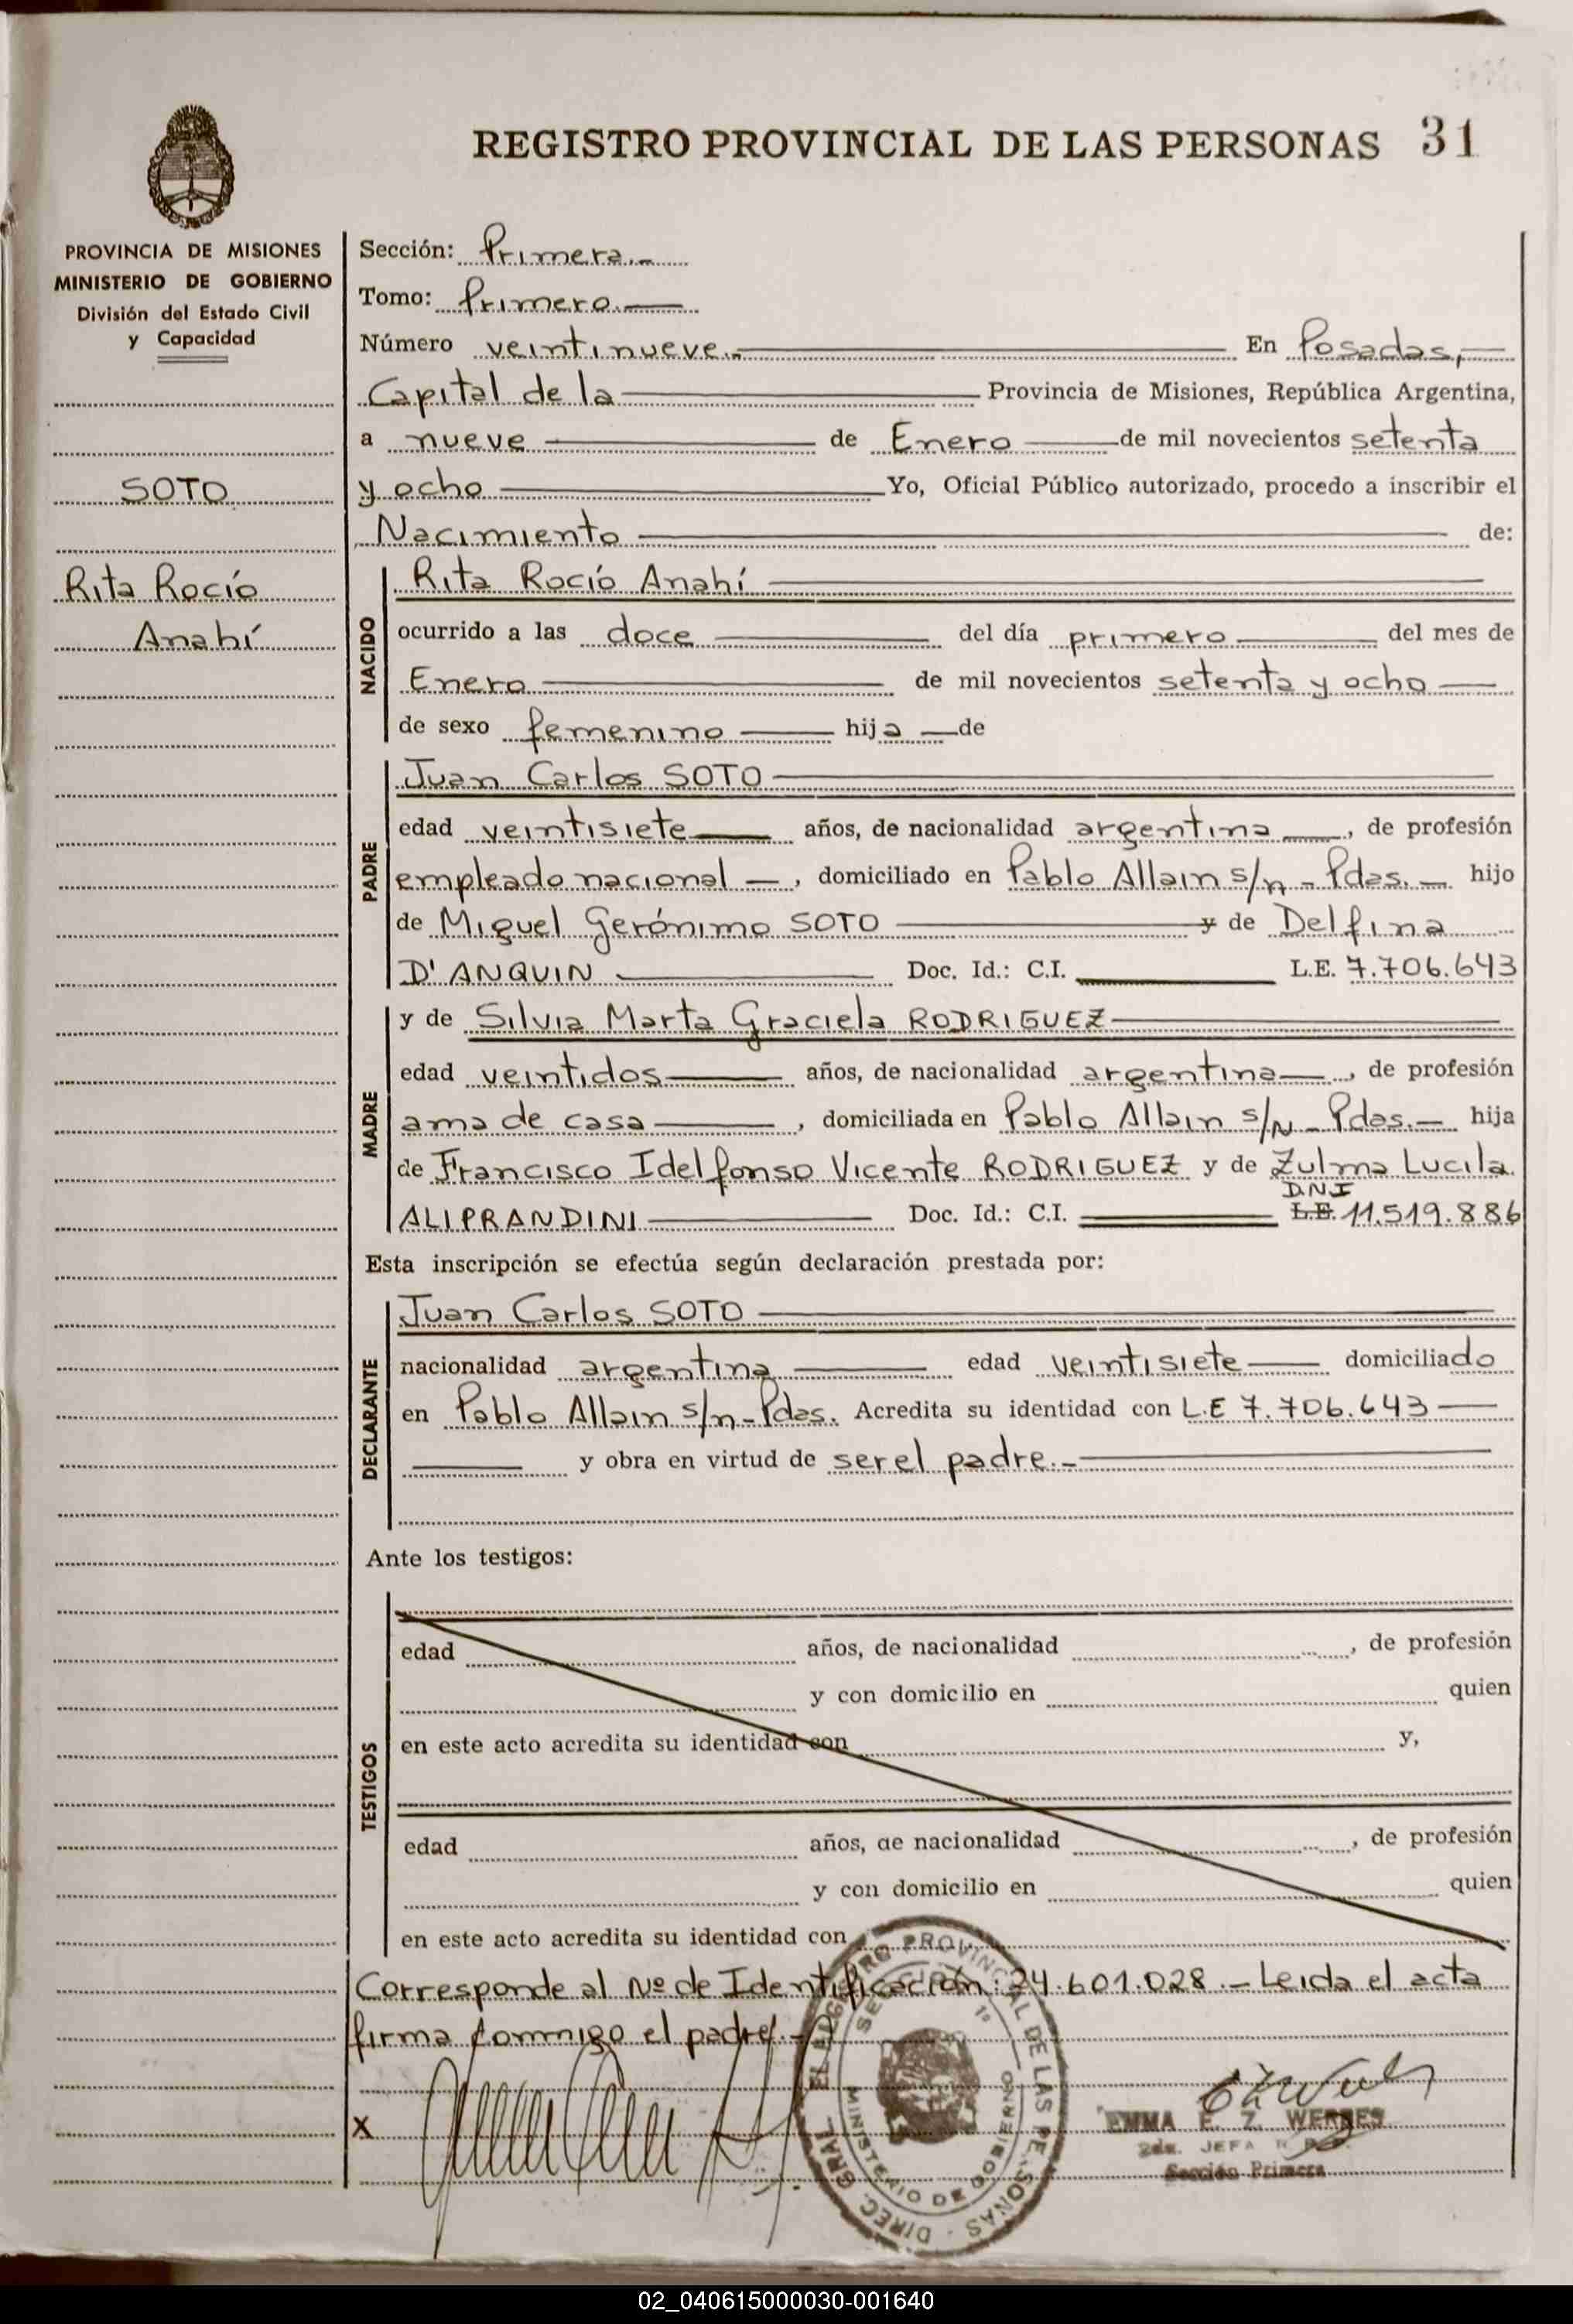 REGISTRO PROVINCIAL DE LAS PERSONAS 31
PROVINCIA DE MISIONES
MINISTERIO DE GOBIERNO
División del Estado Civil
y Capacidad
SOTO
Rita Rocío
Anahí
Sección: Primera.-
Tomo: Primero.
Número veintinueve.- En Posadas,
Capital de la Provincia de Misiones, República Argentina,
a nueve de Enero de mil novecientos setenta
y ocho Yo, Oficial Público autorizado, procedo a inscribir el
Nacimiento de:
NACIDO
Rita Rocío Anahí
ocurrido a las doce del día primero del mes de
Enero de mil novecientos setenta y ocho
de sexo femenino hija de
PADRE
Juan Carlos SOTO
edad veintisiete años, de nacionalidad argentina, de profesión
empleado nacional, domiciliado en Pablo Allain s/n - Pdas. hijo
de Miguel Gerónimo SOTO y de Delfina
D'ANQUIN Doc. Id.: C.I. L.E. 7.706.643
MADRE
y de Silvia Marta Graciela RODRIGUEZ
edad veintidos años, de nacionalidad argentina, de profesión
ama de casa, domiciliada en Pablo Allain s/N - Pdas. hija
de Francisco Idelfonso Vicente RODRIGUEZ y de Zulma Lucila
D.N.I
ALIPRANDINI Doc. Id.: C.I. L.E. 11.519.886
Esta inscripción se efectúa según declaración prestada por:
DECLARANTE
Juan Carlos SOTO
nacionalidad argentina edad veintisiete domiciliado
en Pablo Allain s/n - Pdas. Acredita su identidad con L.E 7.706.643
y obra en virtud de ser el padre.-
Ante los testigos:
TESTIGOS
edad años, de nacionalidad, de profesión
y con domicilio en quien
en este acto acredita su identidad con y,
edad años, de nacionalidad, de profesión
y con domicilio en quien
en este acto acredita su identidad con
Corresponde al Nº de Identificación: 24.601.028.- Leida el acta
firma conmigo el padre.-
X
REGISTRO PROVINCIAL DE LAS PERSONAS - DIREC. GRAL.
MINISTERIO DE GOBIERNO
EMMA E. Z. WERBES
2da. JEFA
Sección Primera
02_040615000030-001640